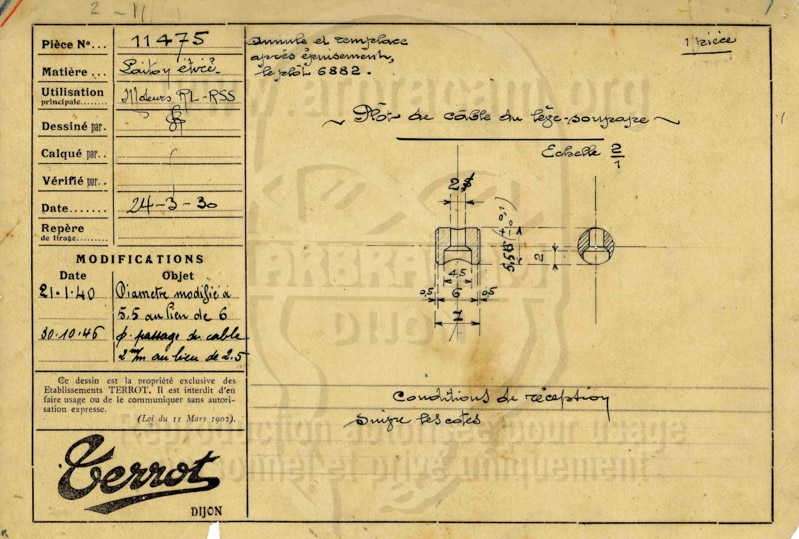 2-11
Pièce N°... 11475
Matière... Laiton étiré.
Utilisation
principale....... Moteurs RL-RSS
Dessiné par.
Calqué par..
Vérifié par..
Date....... 24-3-30
Repère
de tirage.
MODIFICATIONS
Date Objet
21.1.40 Diametre modifié à
5.5 au lieu de 6
30.10.45 ø. passage de cable
2 m/m au lieu de 2.5
Ce dessin est la propriété exclusive des
Etablissements TERROT. Il est interdit d'en
faire usage ou de le communiquer sans autori-
sation expresse.
(Loi du 11 Mars 1902).
Terrot
DIJON
Annule et remplace
après épuisement,
le plôt 6882.
1 pièce
~ Plôt de câble du lève-soupape ~
Echelle 2/1
2
5,5
+ 0,1
- 0
2
4,5
0,5 6 0,5
7
Conditions de réception
Suivre les cotes
www.arbracam.org
ARBRACAM
DIJON
Reproduction autorisée pour usage
personnel et privé uniquement